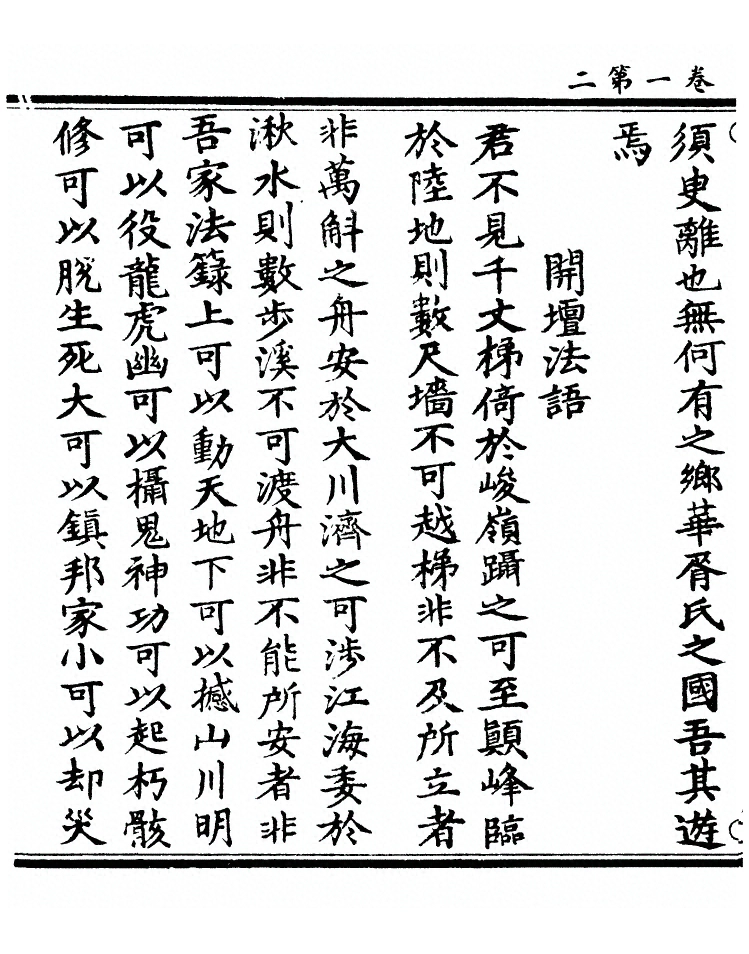 卷一第二
須臾離也無何有之鄉華胥氏之國吾其遊
焉
開壇法語
君不見千丈梯倚於峻嶺躡之可至顛峰臨
於陸地則數尺墻不可越梯非不及所立者
非萬斛之舟安於大川濟之可涉江海委於
湫水則數步溪不可渡舟非不能所安者非
吾家法籙上可以動天地下可以撼山川明
可以役龍虎幽可以攝鬼神功可以起朽骸
修可以脫生死大可以鎮邦家小可以却災